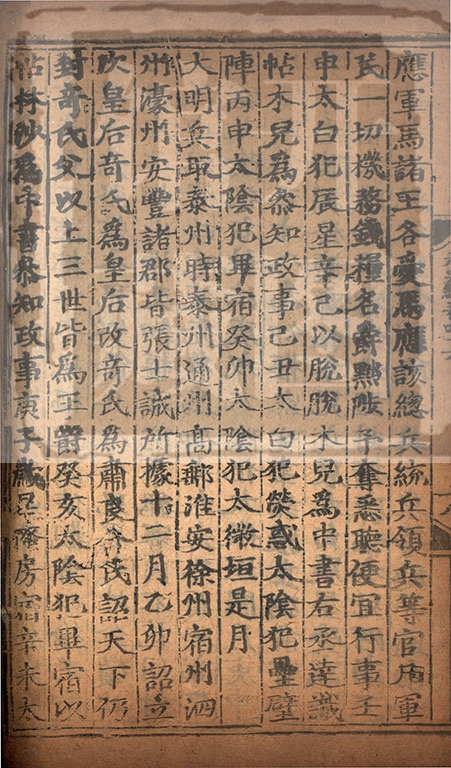 應軍馬諸王各愛馬應該總兵統兵領兵等官用軍
民一切機務錢糧名爵黜陟予奪悉聽便宜行事壬
申太白犯辰星辛己以脫脫木兒爲中書右丞達識
帖木兒爲叅知政事己丑太白犯熒惑太陰犯壘壁
陣丙申太陰犯畢宿癸卯太陰犯太微垣是月
大明兵取泰州時泰州通州高郵淮安徐州宿州泗
州濠州安豐諸郡皆張士誠所據十二月乙卯詔立
次皇后奇氏爲皇后改奇氏爲肅良合氏詔天下仍
封奇氏父以上三世皆爲王爵癸亥太陰犯畢宿以
帖林沙爲中書叅知政事庚子歲星犯房宿辛未太